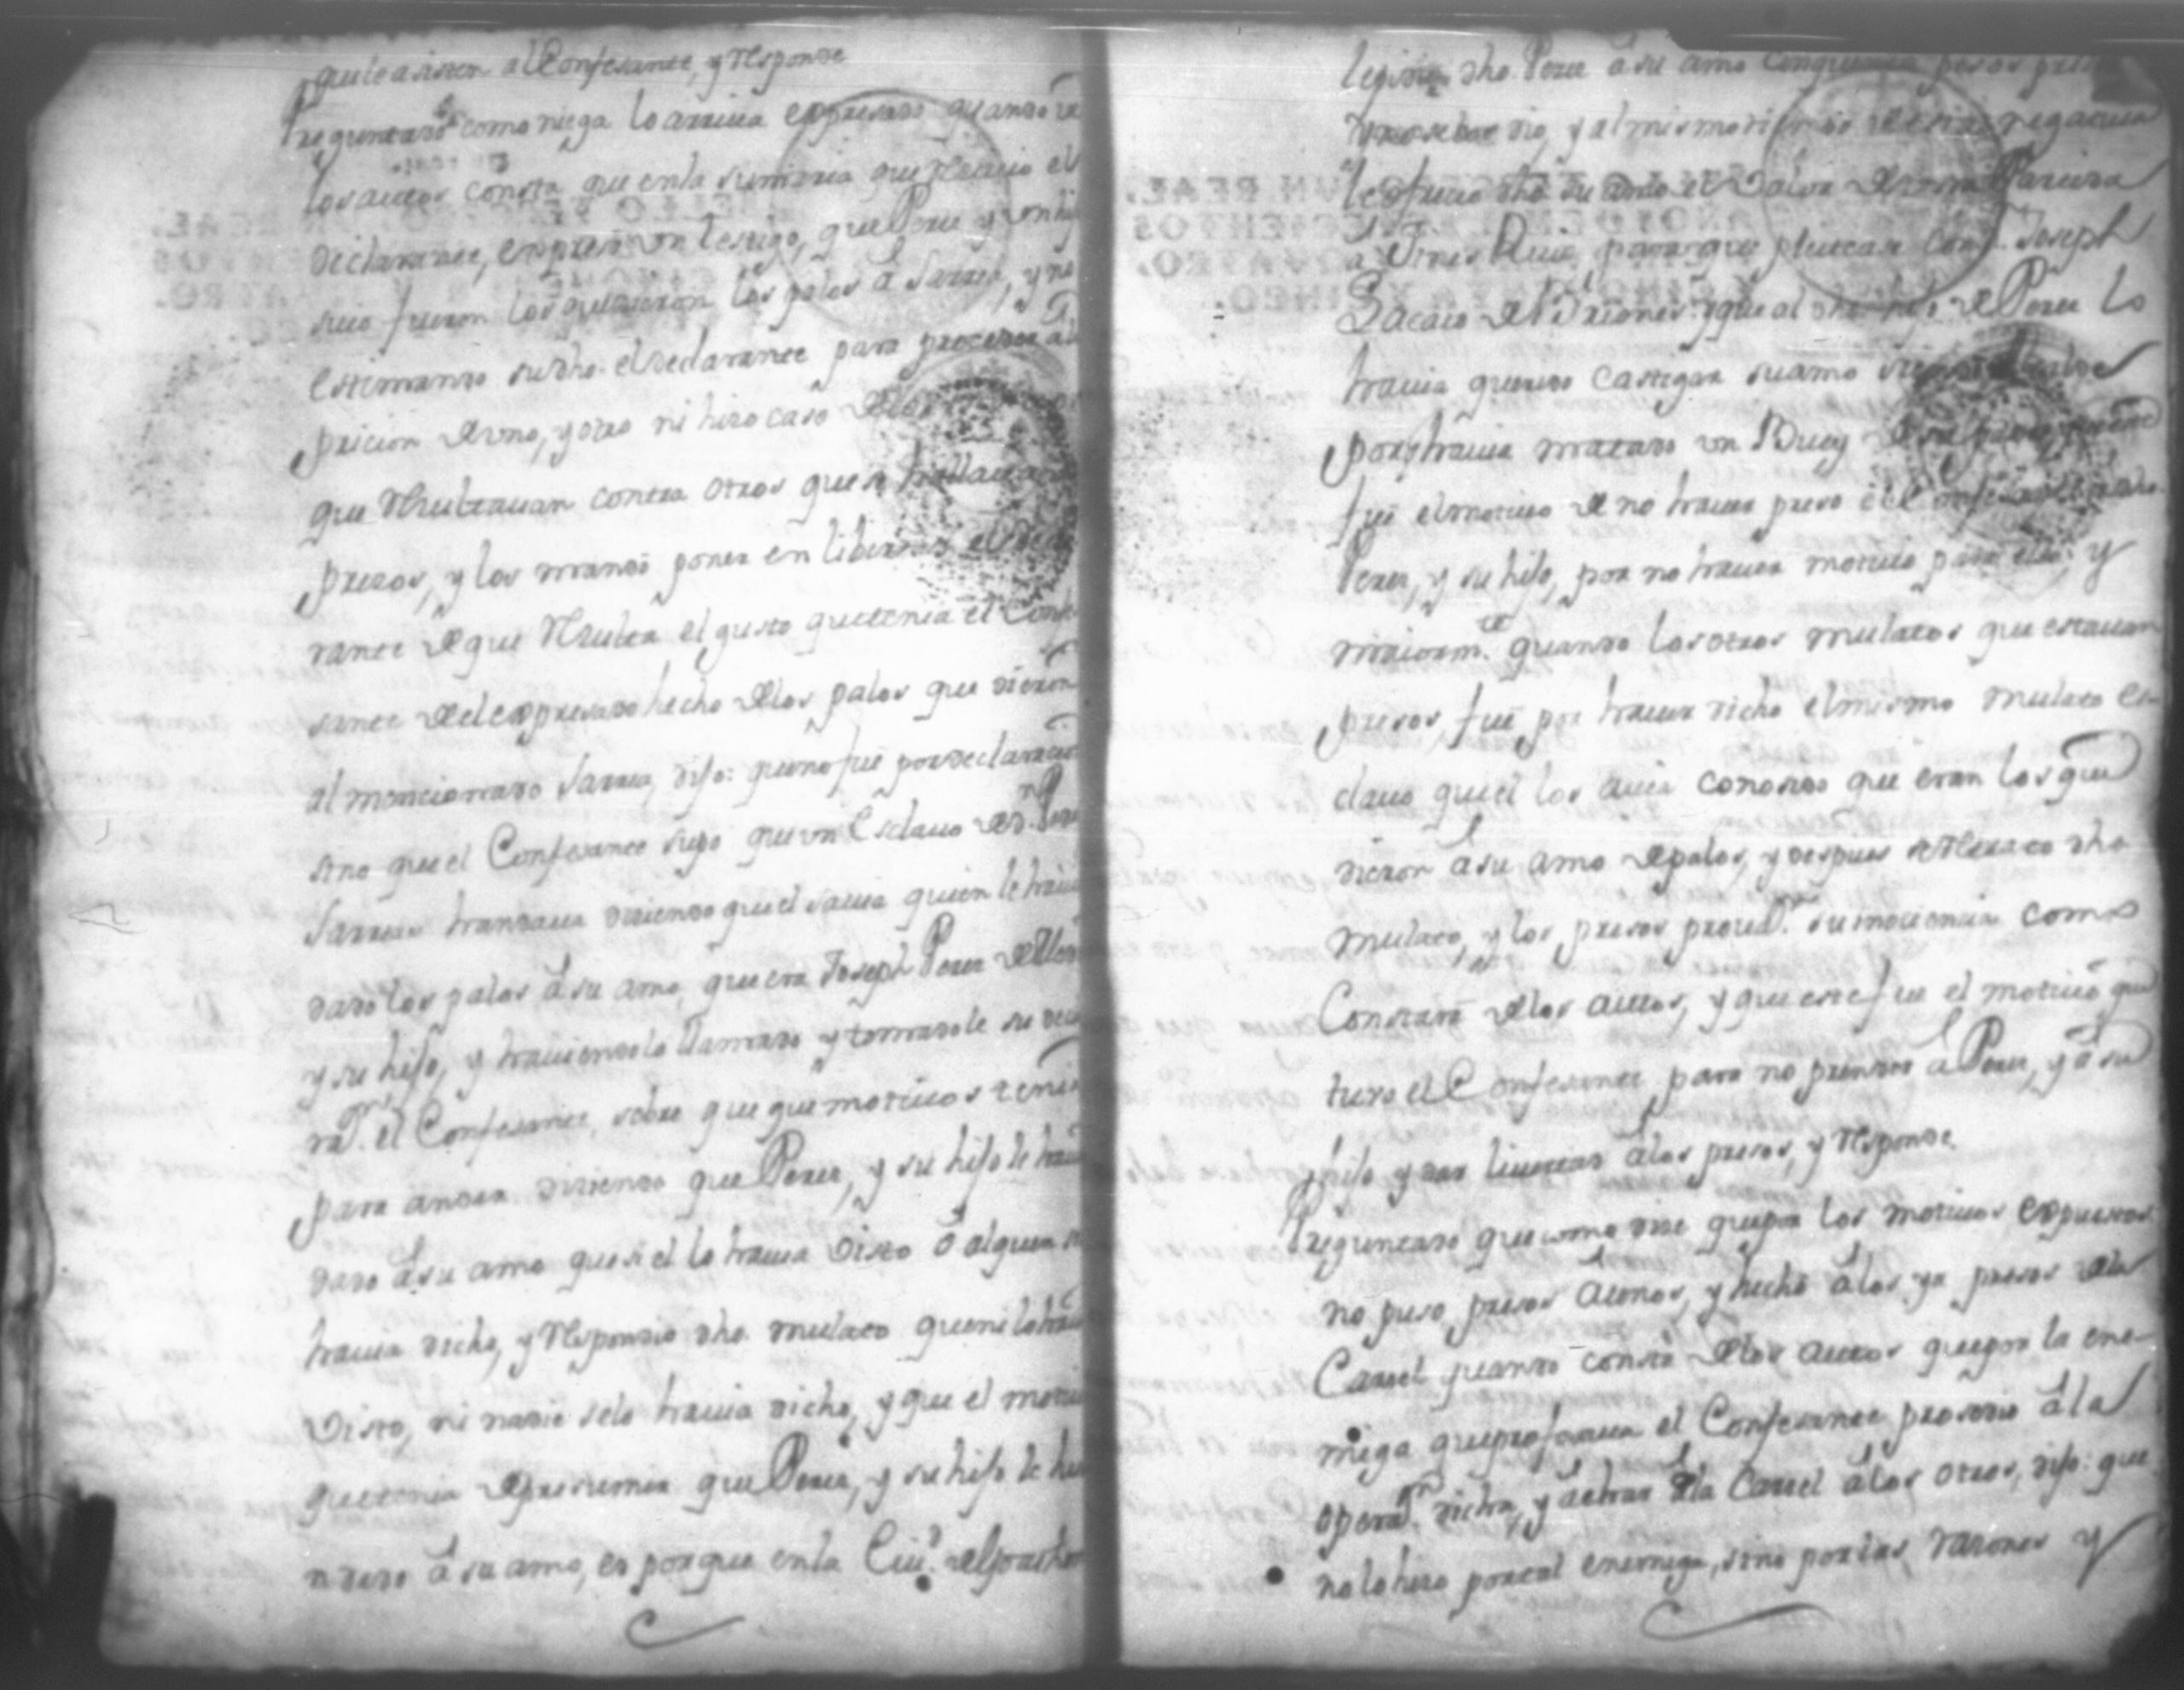 que le asisten al Confesante, y responde
Preguntado como niega lo arriua expresado quando de
los autos consta que en la sumaria que reciuio el
declarante, expresó vn testigo, que Perez y vn hijo
suio fueron los que dieron los palos á Sarria, y no
estimando su dho. el declarante para proceder a la
pricion de vno, y otro ni hizo caso de
que resultauan contra otros que se hallauan
prezos, y los mandó poner en libertad el decla
rante de que resulta el gusto que tenia el Confe
sante del expresado hecho de los palos que dieron
al mencionado Sarria, dijo: que no fue por declaracion
sino que el Confesante supo que vn Esclauo de Dn. Pedro
Sarria handaua diziendo que el sauia quien le hauia
dado los palos á su amo, que era Joseph Perez de
y su hijo, y hauiendolo llamado y tomadole su decla
raon. el Confesante, sobre que que motiuos tenia
para andar diziendo que Perez, y su hijo le hauian
dado á su amo que si el lo hauia visto ó alguien se
hauia dicho, y respondio dho. mulato que ni lo hauia
visto, ni nadie selo hauia dicho, y que el motiuo
que tenia de presumir que Perez, y su hijo le hu
á su amo, es porque en la Ciud. del
dho Perez á su amo cinquenta pesos
dio, y al mismo tiempo
le ofrecio dho su amo el valor de
a para que pleitease con Dn. Joseph
Lacaio de Briones y que al dho hijo de Perez lo
hauia querido castigar su amo
por q hauia matado vn Buey
fue el motiuo de no hauer preso el Confesante a dho
Perez, y su hijo, por no hauer motiuo para ello, y
maiormte. quando los otros mulatos que estauan
presos, fue por hauer dicho el mismo mulato es-
clauo que el los auia conosido que eran los que
dieron á su amo de palos, y despues se retracto dho
mulato, y los presos prouaron su inocencia como
Constará de los autos, y que este fue el motiuo que
tuuo el Confesante para no prender á Perez, y á su
hijo y dar liuertad á los presos, y responde
Preguntado que como dize que por los motiuos expuestos
no puso presos a vnos, y hechó á los ya presos de la
Carcel quando consta de los autos que por la ene-
miga que profesaua el Confesante procedio á la
operaon. dicha, y á echar de la Carcel á los otros, dijo: que
no lo hizo por tal enemiga, sino por las razones y